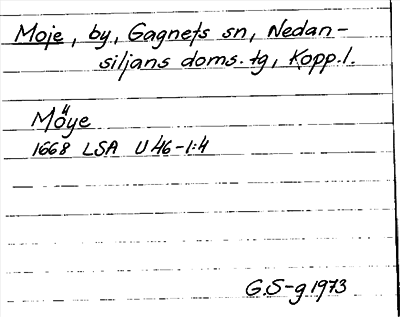 Moje, by, Gagnefs sn, Nedan-
siljans doms. tg, Kopp.l.
Möye
1668 LSA U46-1:4
G.S-g 1973